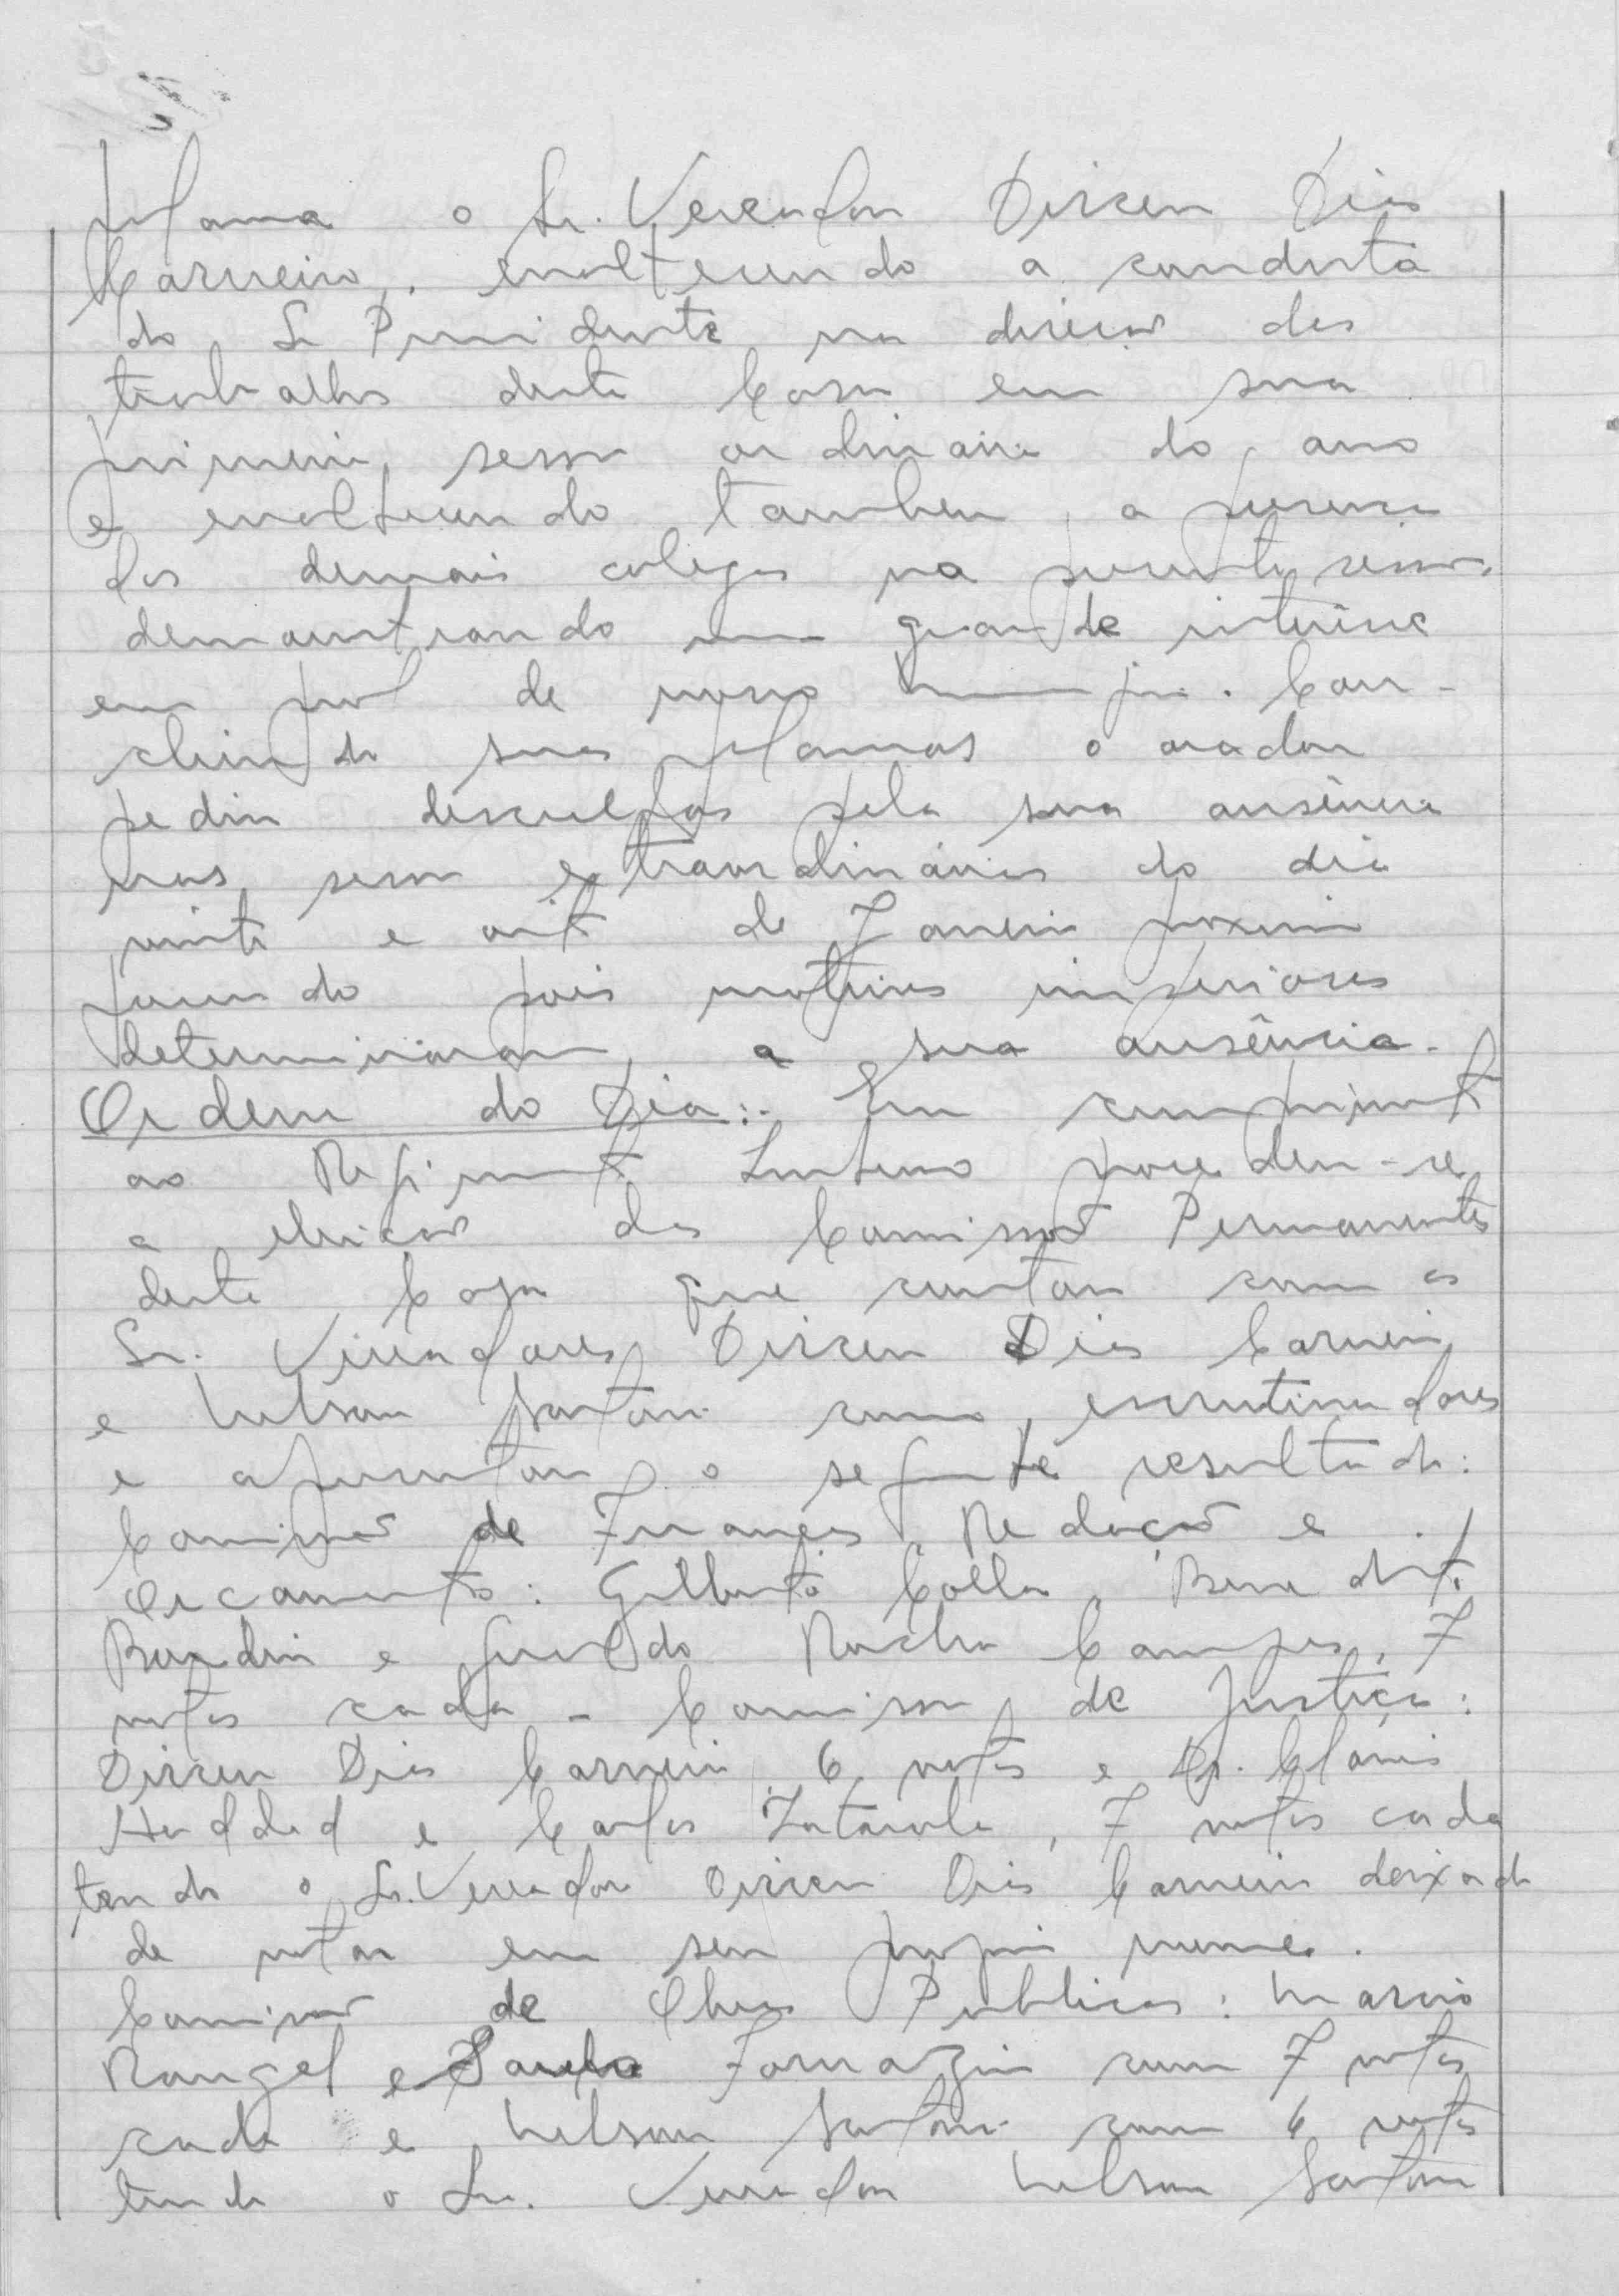 palavra o Sr. Vereador Dirceu Dias
Carneiro, enaltecendo a conduta
do Sr Presidente na direção dos
trabalhos desta Casa em sua
primeira sessão ordinária do ano
e enaltecendo tambem a presença
dos demais colegas na presente sessão,
demonstrando um grande interesse
em prol de nosso município. Con-
cluindo suas palavras o orador
pediu desculpas pela sua ausência
nas sessão extraordinárias do dia
vinte e oito de Janeiro proximo
passado pois motivos superiores
determinaram a sua ausência.
Ordem do Dia:- Em cumprimento
ao Regimento Interno procedeu-se
a eleição das Comissão Permanentes
desta Casa que contou com os
Sr. Vereadores Dirceu Dias Carneiro
e Nelson Santoni como escrutinadores
e apuraram o seguinte resultado:
Comissão de Finanças, Redação e
Orcamento: Gilberto Colla, Benedito
Bendin e Geraldo Rocha Campos, 7
votos cada - Comissão de Justiça:
Dirceu Dias Carneiro 6 votos e Dr. Clovis
Haddad e Carlos, 7 votos cada
tendo o Sr. Vereador Dirceu Dias Carneiro deixado
de votar em seu proprio nome.
Comissão de Obras Publicas: Mario
Rangel e Paulo Fornazin com 7 votos
cada e Nelson Santoni com 6 votos
tendo o Sr. Vereador Nelson Santoni